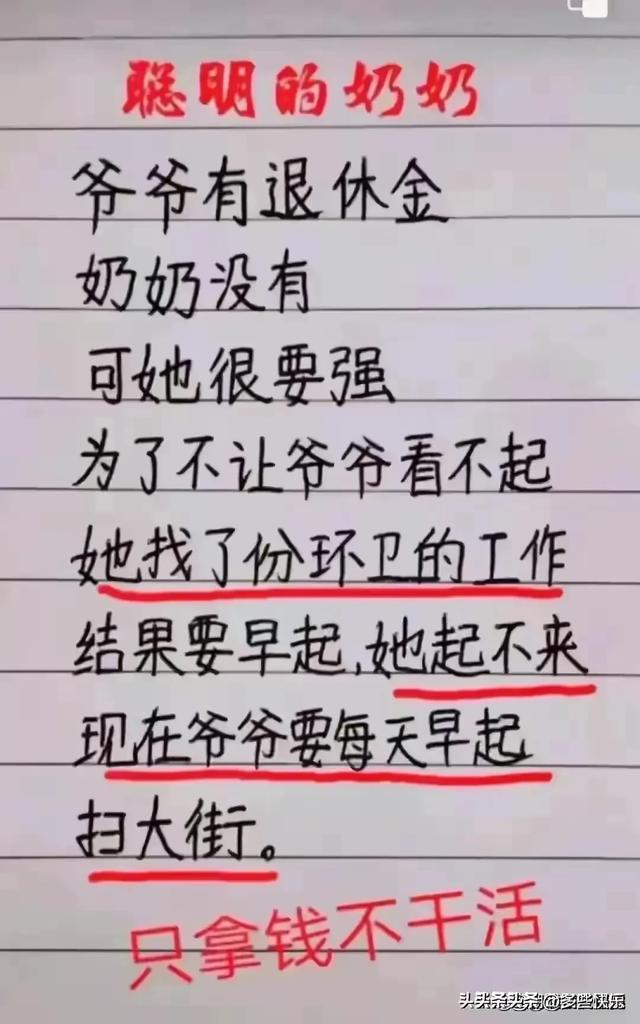 聪明的奶奶
爷爷有退休金
奶奶没有
可她很要强
为了不让爷爷看不起
她找了份环卫的工作
结果要早起,她起不来
现在爷爷要每天早起
扫大街。
只拿钱不干活